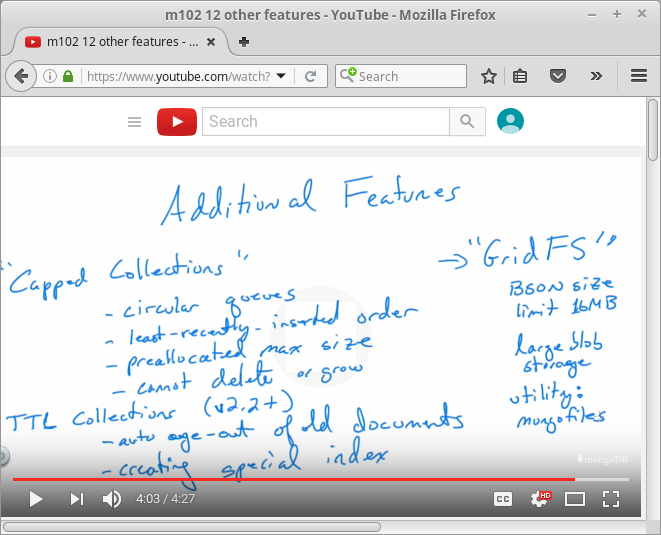 m102 12 other features - YouTube - Mozilla Firefox
m102 12 other features - ...
https://www.youtube.com/watch?
Search
Search
Additional Features
"Capped Collections"
- circular queues
- least-recently-inserted order
- preallocated max size
- cannot delete or grow
TTL Collections (v2.2+)
- auto age-out of old documents
- creating special index
→ "GridFS"
BSON size
limit 16MB
large blob
storage
utility:
mongofiles
mongoDB
4:03 / 4:27
CC
HD